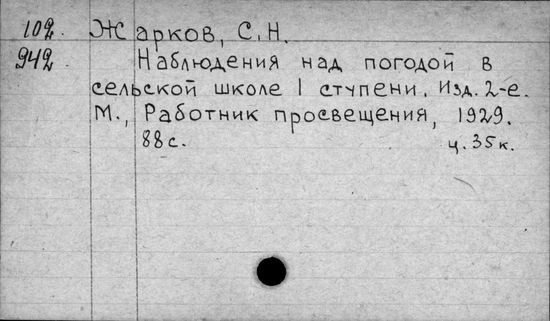 102. Жарков, С.Н.
942. Наблюдения над погодой в
сельской школе I ступени. Изд. 2-е.
М., Работник просвещения, 1929.
88 с. ц. 35 к.